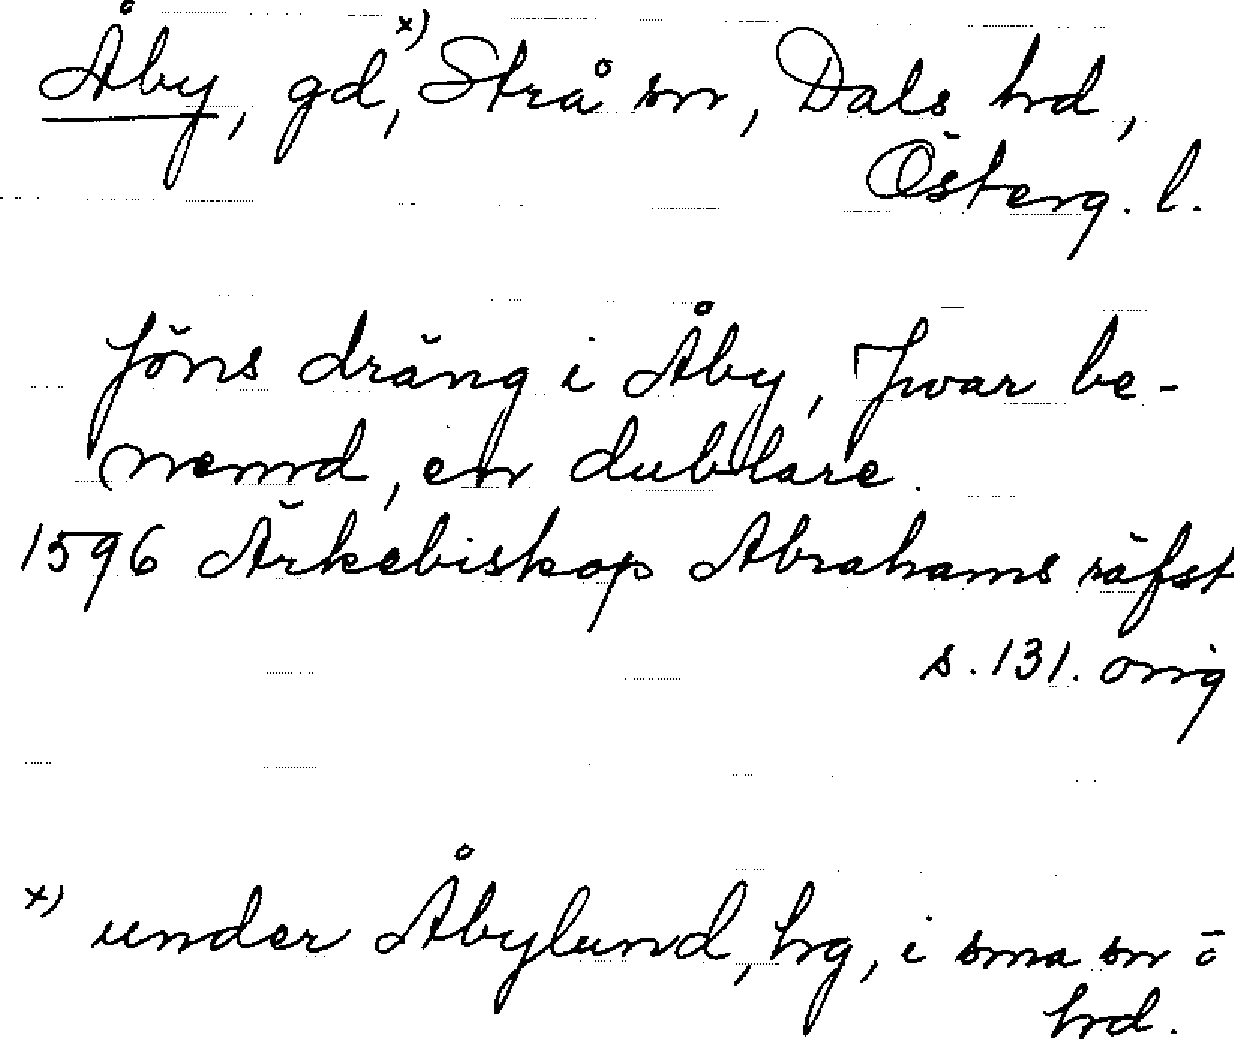 Åby, gd,ˣ⁾ Strå sn, Dals hrd,
Österg. l.
Jöns dräng i Åby, Jwar be-
nemd, en dublare.
1596 Ärkebiskop Abrahams räfst
s. 131. orig
x) under Åbylund, hg, i sma sn o
hrd.